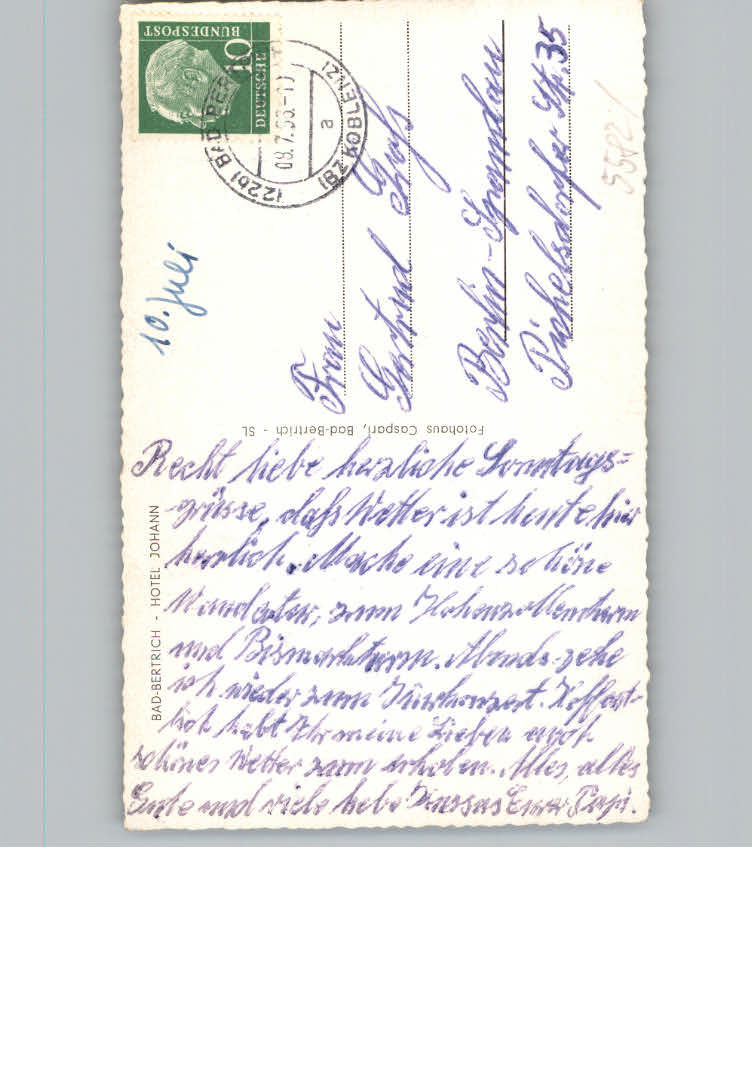 DEUTSCHE
BUNDESPOST
10
(22b) BAD BERTRICH
(BZ KOBLENZ)
a
10. Juli
Frau
Gertrud Groß
Berlin-Spandau
Pichelsdorfer Str. 35
Fotohaus Caspari, Bad-Bertrich - SL
BAD-BERTRICH - HOTEL JOHANN
Recht liebe herzliche Sonntags=
grüsse, daß Wetter ist heute hier
herrlich. Mache eine schöne
zum Hohenzollernturm
und Bismarckturm. Abends gehe
ich wieder zum Kurkonzert. Hoffent-
lich habt Ihr meine Lieben auch
schönes Wetter zum erholen. Alles, alles
Gute und viele liebe Euer Papi.